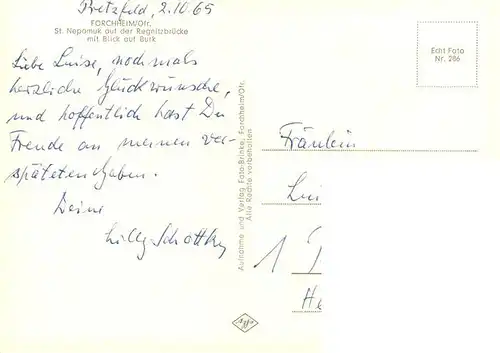 Pretzfeld, 2.10.65
FORCHHEIM/Ofr.
St. Nepomuk auf der Regnitzbrücke
mit Blick auf Burk
Echt Foto
Nr. 286
Liebe Luise, nochmals
herzliche Glückwünsche,
und hoffentlich hast Du
Freude an meinen ver-
späteten Gaben.
Deine
Lilly Schottky
Aufnahme und Verlag Foto-Brinke, Forchheim/Ofr.
Alle Rechte vorbehalten
Fräulein
Lui
1
He